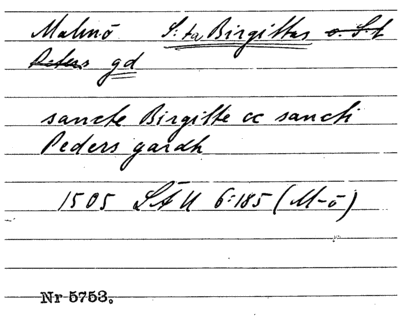 Malmö S:ta Birgittas o. S:t
Peters gd
sancte Birgitte oc sancti
Peders gardh
1505 LÄU 6:185 (M-ö)
Nr 5753.